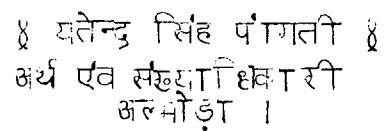 ४ यतेन्द्र सिंह पांगती ४
अर्थ एंव संख्याधिकारी
अल्मोड़ा ।